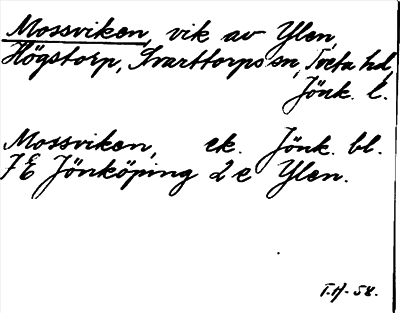 Mossviken, vik av Ylen,
Högstorp, Svarttorps sn, Tveta hd,
Jönk. l.
Mossviken, ek. Jönk. bl.
7E Jönköping 2e Ylen.
T.H-58.